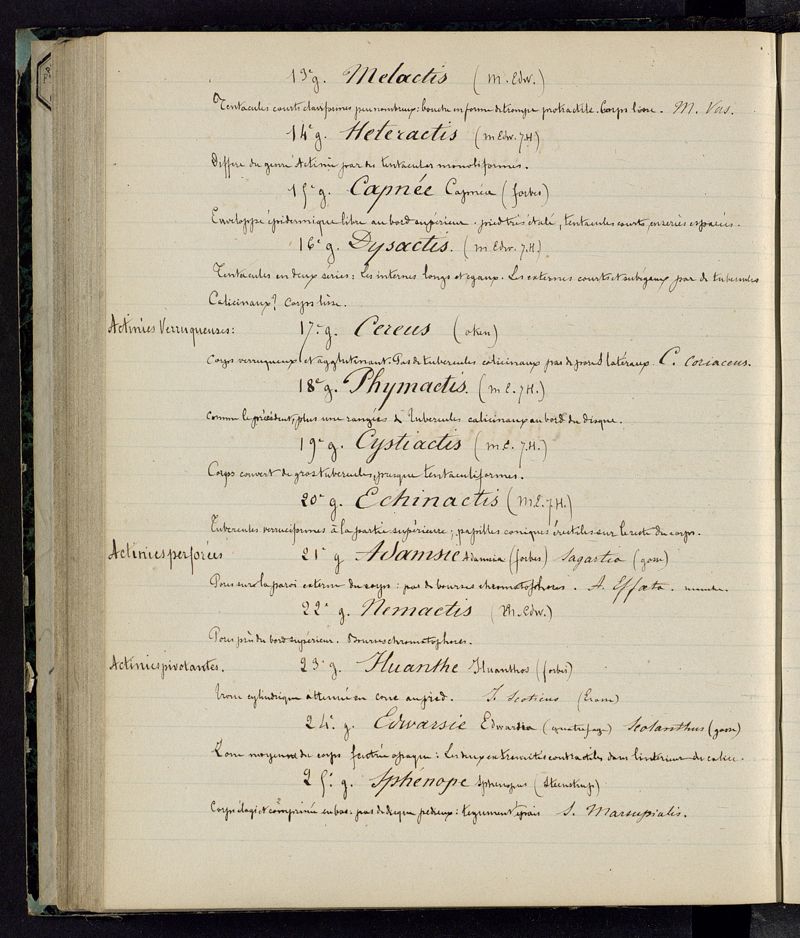 13e g. Melactis (M. Edw.)
Tentacules courts claviformes peu nombreux: bouche en forme de trompe protractile. Corps lisse. M. Vas.
14e g. Heteractis (M Edw. 7. H)
Differe du genre Actinie par des tentacules monoliformes.
15e g. Capnée Capnea (forbes)
Enveloppe épidermique libre au bord supérieur. pied très étalé, tentacules courts, en séries espacées.
16e g. Dysactis. (M Edw. 7. H)
Tentacules en deux séries: les internes longs et egaux. Les externes courts et subegaux pas de tubercules
Calicinaux? Corps lisse.
Actinies Verruqueuses: 17e g. Cereus (oken)
Corps verruqueux et agglutinant. Pas de tubercules calicinaux pas de pores latéraux. C. Coriaceus.
18e g. Phymactis. (M E. 7 H.)
Comme le précédent, plus une rangée de Tubercules calicinaux au bord du disque.
19e g. Cystiactis (M E. 7. H.)
Corps couvert de gros tubercules, presque tentaculiformes.
20e g. Echinactis (M E. 7 H.)
Tubercules verruciformes à la partie supérieure; papilles coniques érectiles sur le reste du corps.
Actinies perforées 21e g Adamsie Adamsia (forbes) Sagartia (goss)
Pores sur la paroi externe du corps: pas de bourses chromatophores. A. Effæta.
22e g. Nemactis (M. Edw.)
Pores près du bord supérieur. Bourses chromatophores.
Actinies pivotantes. 23e g. Iluanthe Iluanthos (forbes)
Tronc cylindrique attenué en cone au pied. I Scoticus
24e. g. Edwarsie Edwarsia (quatrefage) Scolanthus (goss)
Zone moyenne du corps feutrée opaque: Les deux extremités contractiles dans l'intérieur du calice.
25e. g. Sphénope Sphenopus (Steenstrup)
Corps élargi et comprimé en bas: pas de disque pedieux: tegument épais S. Marsupialis.